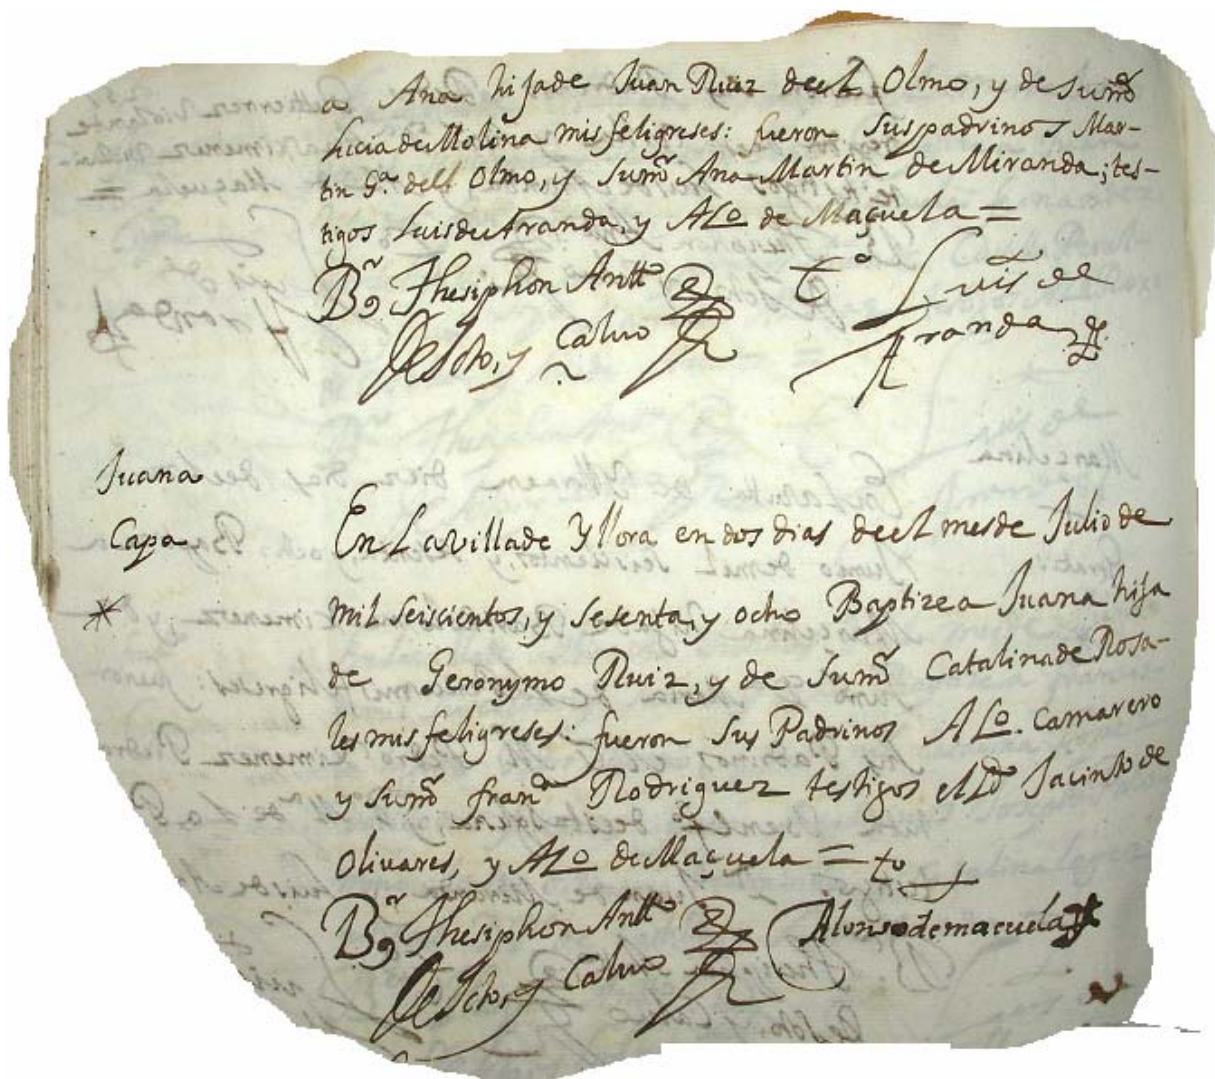 a Ana hija de Juan Ruiz de el Olmo, y de su mᵒ
Lucia de Molina mis feligreses: fueron sus padrinos Mar-
tin Gᵃ. dell Olmo, y su mᵒ Ana Martin de Miranda; tes-
tigos Luis de Aranda, y ALᵒ de Maçuela =
Bʳ Thesiphon Anttᵒ
tᵒ Luis de
de Soto, y Calvo
Aranda
Juana
Capa
En La villa de Yllora en dos dias de el mes de Julio de
mil seiscientos, y sesenta, y ocho Baptize a Juana hija
de Geronymo Ruiz, y de su mᵒ Catalina de Rosa-
les mis feligreses: fueron sus Padrinos ALᵒ. Camarero
y su mᵒ franᶜᵃ Rodriguez testigos el Ldᵒ Jacinto de
Olivares, y ALᵒ de Maçuela = tᵒ
Bʳ Thesiphon Anttᵒ
Alonso de macuela
de Soto, y Calvo